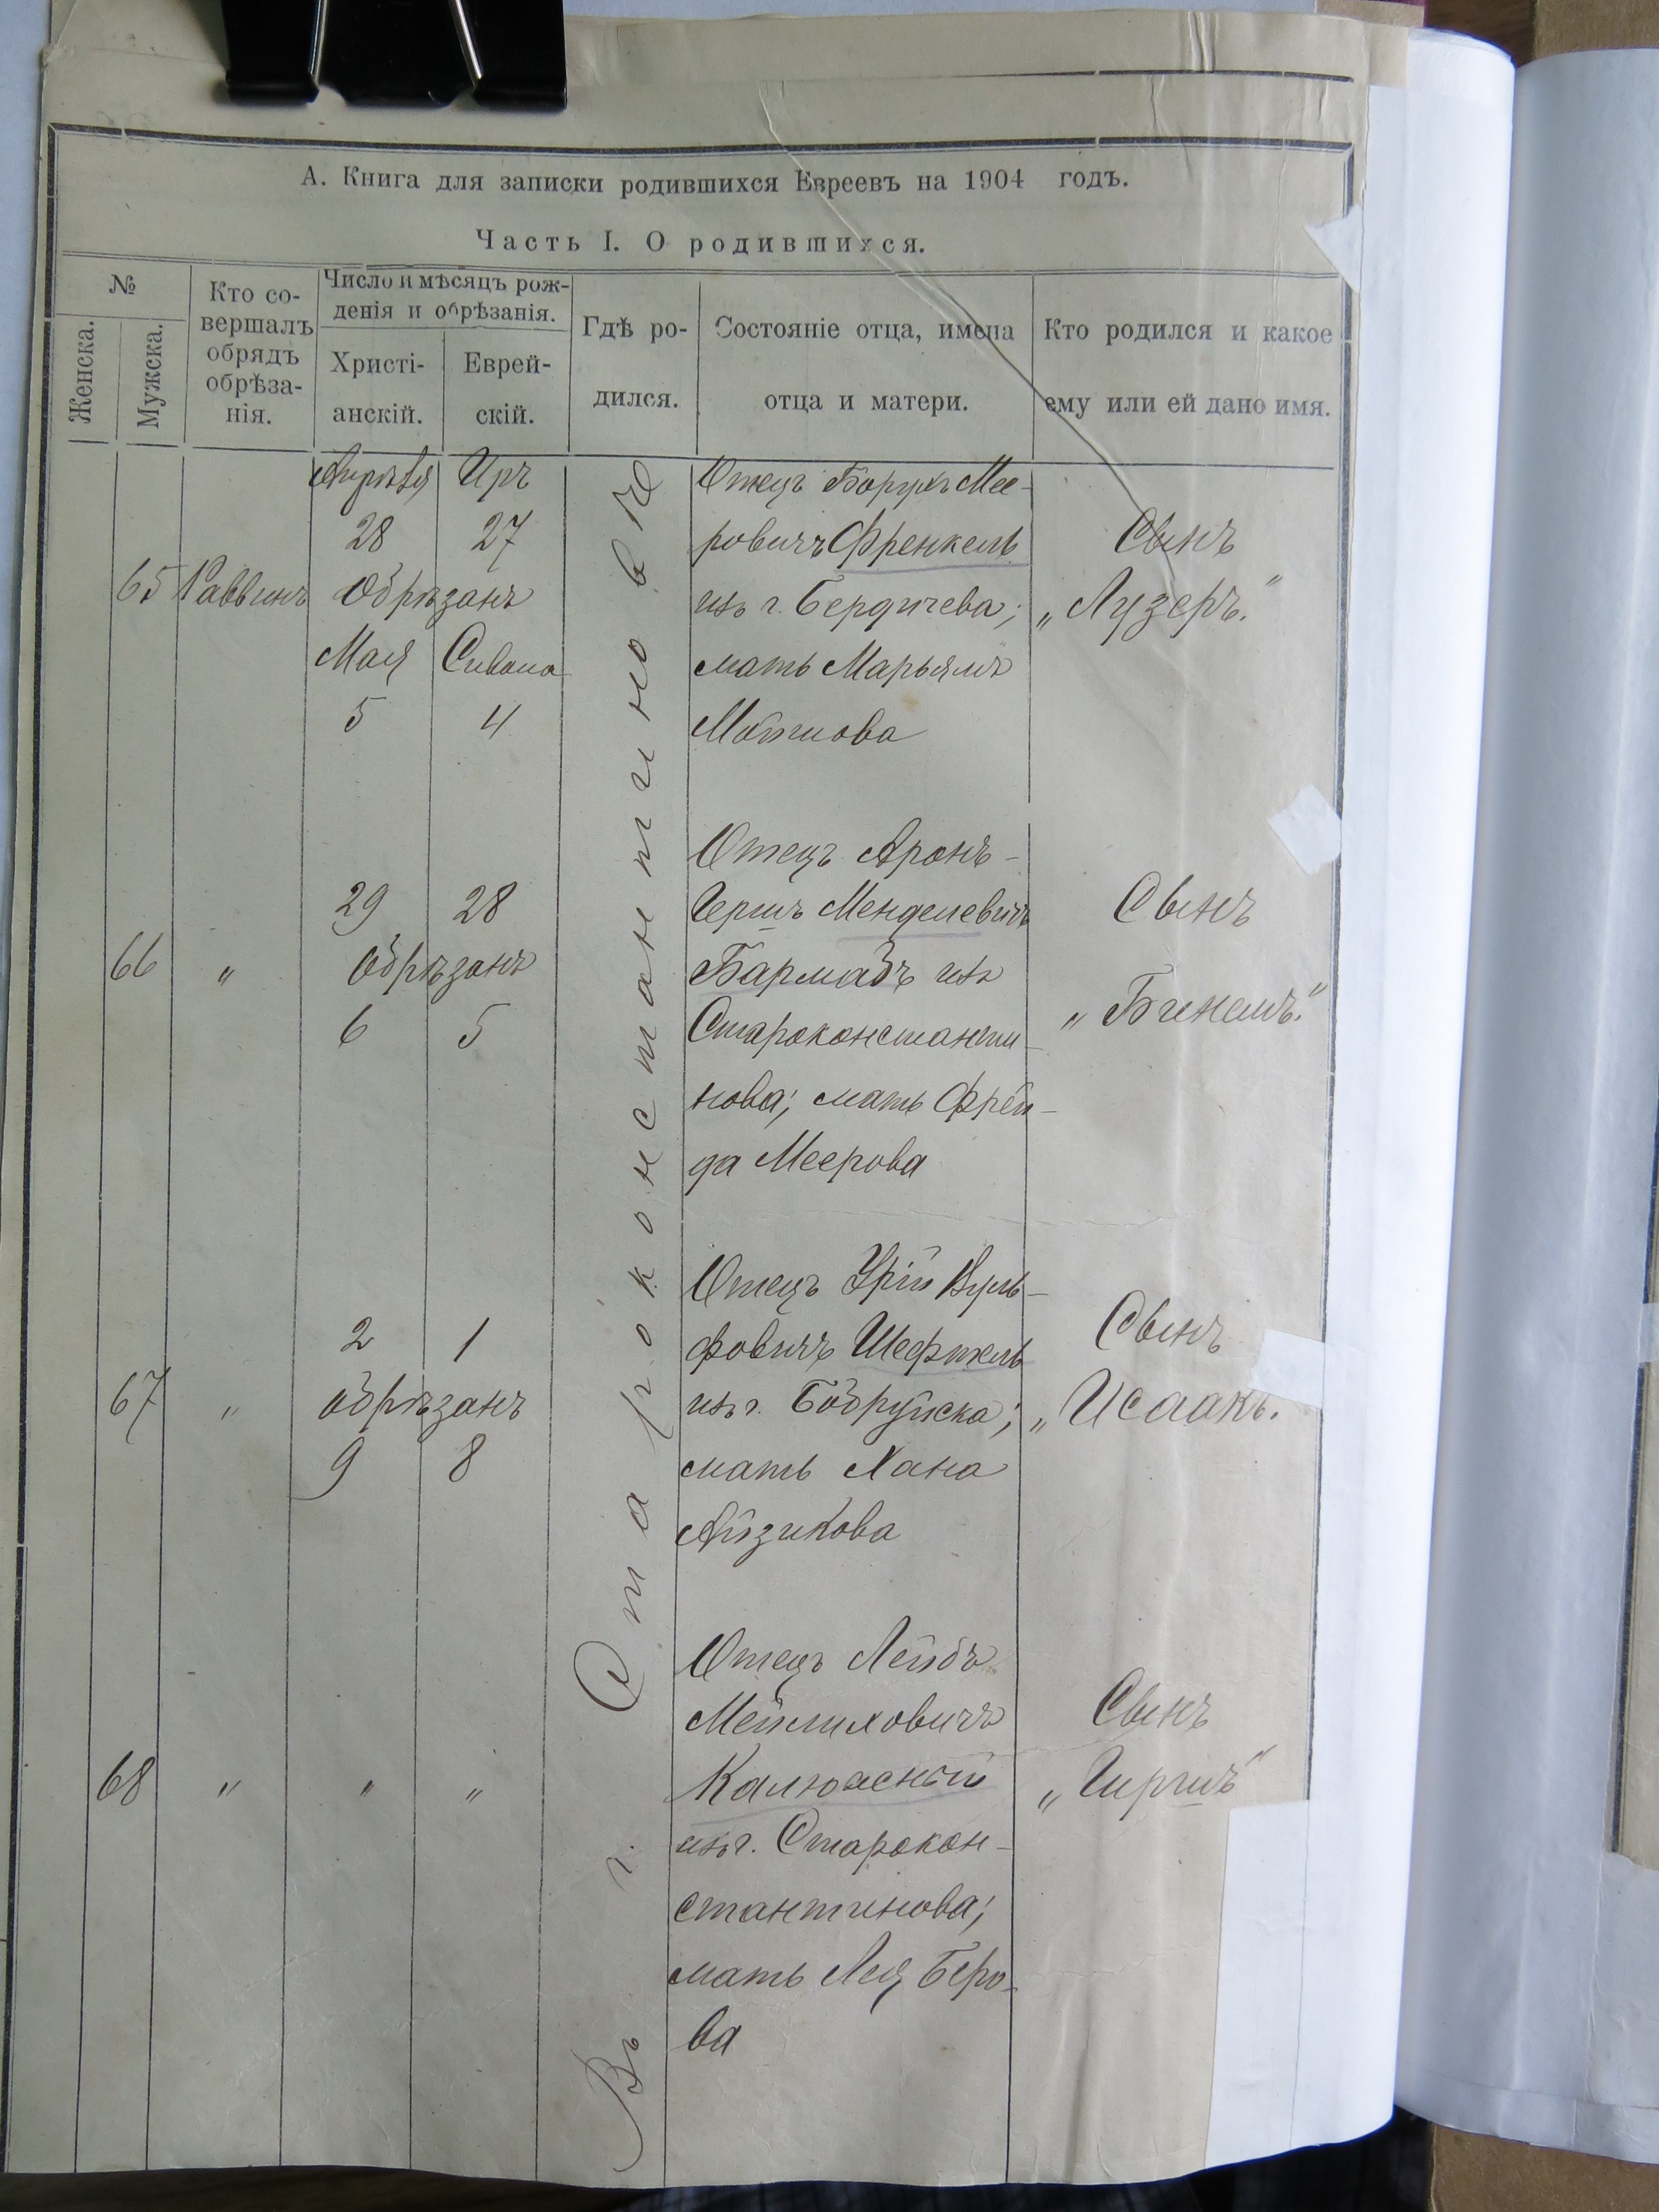 А. Книга для записки родившихся Евреевъ на 1904 годъ.
Часть I. О родившихся.
№
Женска.
Мужска.
Кто со-
вершалъ
обрядъ
обрѣза-
нія.
Число и мѣсяцъ рож-
денія и обрѣзанія.
Христі-
анскій.
Еврей-
скій.
Гдѣ ро-
дился.
Состояніе отца, имена
отца и матери.
Кто родился и какое
ему или ей дано имя.
Въ г. Староконстантиновѣ
65
Раввинъ
Апрѣля Иръ
28 27
Обрѣзанъ
Мая Сивана
5 4
Отецъ Борухъ Мее-
ровичъ Френкель
изъ г. Бердичева;
мать Марьямъ
Сынъ
„Лузеръ.“
66
„
29 28
Обрѣзанъ
6 5
Отецъ Аронъ-
Гершъ Менделевичъ
Бармадъ изъ
Староконстанти-
нова; мать Фрей-
да Меерова
Сынъ
„Бинемъ.“
67
„
2 1
Обрѣзанъ
9 8
Отецъ Урій Вуль-
фовичъ Шефтель
изъ г. Бобруйска;
мать Хана
Айзикова
Сынъ
„Исаакъ.
68
„
„ „
Отецъ Лейбъ
Мейлиховичъ
Калюсскій
изъ г. Старокон-
стантинова;
мать Лея Беро-
ва
Сынъ
„Гиршъ“